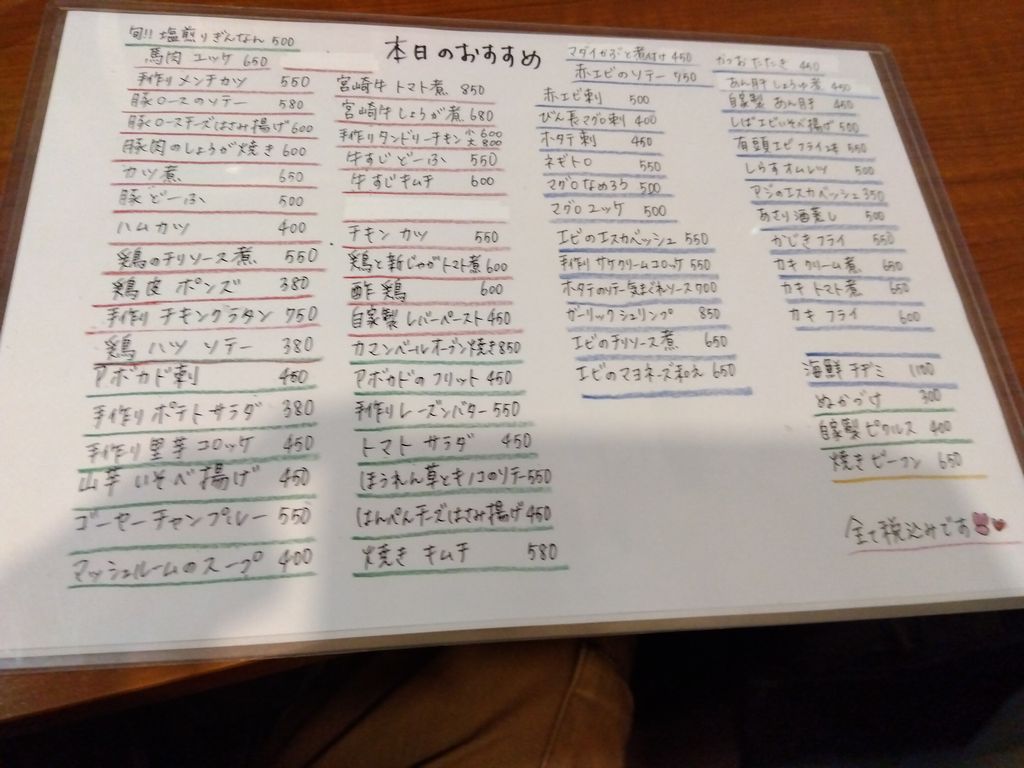 本日のおすすめ
旬!! 塩煎りぎんなん 500
馬肉 ユッケ 650
手作り メンチカツ 550
豚ロースのソテー 580
豚ロースチーズはさみ揚げ 600
豚肉のしょうが焼き 600
カツ煮 650
豚どーふ 500
ハムカツ 400
鶏のチリソース煮 550
鶏皮 ポンズ 380
手作り チキングラタン 750
鶏ハツ ソテー 380
アボカド刺 450
手作り ポテトサラダ 380
手作り 里芋コロッケ 450
山芋いそべ揚げ 450
ゴーヤーチャンプルー 550
マッシュルームのスープ 400
宮崎牛 トマト煮 850
宮崎牛しょうが煮 680
手作りタンドリーチキン 小600 大800
牛すじどーふ 550
牛すじキムチ 600
チキンカツ 550
鶏と新じゃがトマト煮 600
酢鶏 600
自家製 レバーペースト 450
カマンベールオーブン焼き 850
アボカドのフリット 450
手作りレーズンバター 550
トマトサラダ 450
ほうれん草とキノコのソテー 550
はんぺんチーズはさみ揚げ 450
焼きキムチ 580
マダイかぶと煮付け 450
赤エビのソテー 750
赤エビ刺 500
びん長マグロ刺 400
ホタテ刺 450
ネギトロ 550
マグロなめろう 500
マグロユッケ 500
エビのエスカベッシュ 550
手作り サケクリームコロッケ 550
ホタテのソテー気まぐれソース 700
ガーリックシュリンプ 850
エビのチリソース煮 650
エビのマヨネーズ和え 650
かつおたたき 450
あん肝しょうゆ煮 450
自家製 あん肝 450
しばエビいそべ揚げ 500
有頭エビフライ2本 550
しらすオムレツ 500
アジのエスカベッシュ 350
あさり酒蒸し 500
かじきフライ 550
カキクリーム煮 650
カキトマト煮 650
カキフライ 600
海鮮チヂミ 1100
ぬかづけ 300
自家製ピクルス 400
焼きビーフン 650
全て税込みです